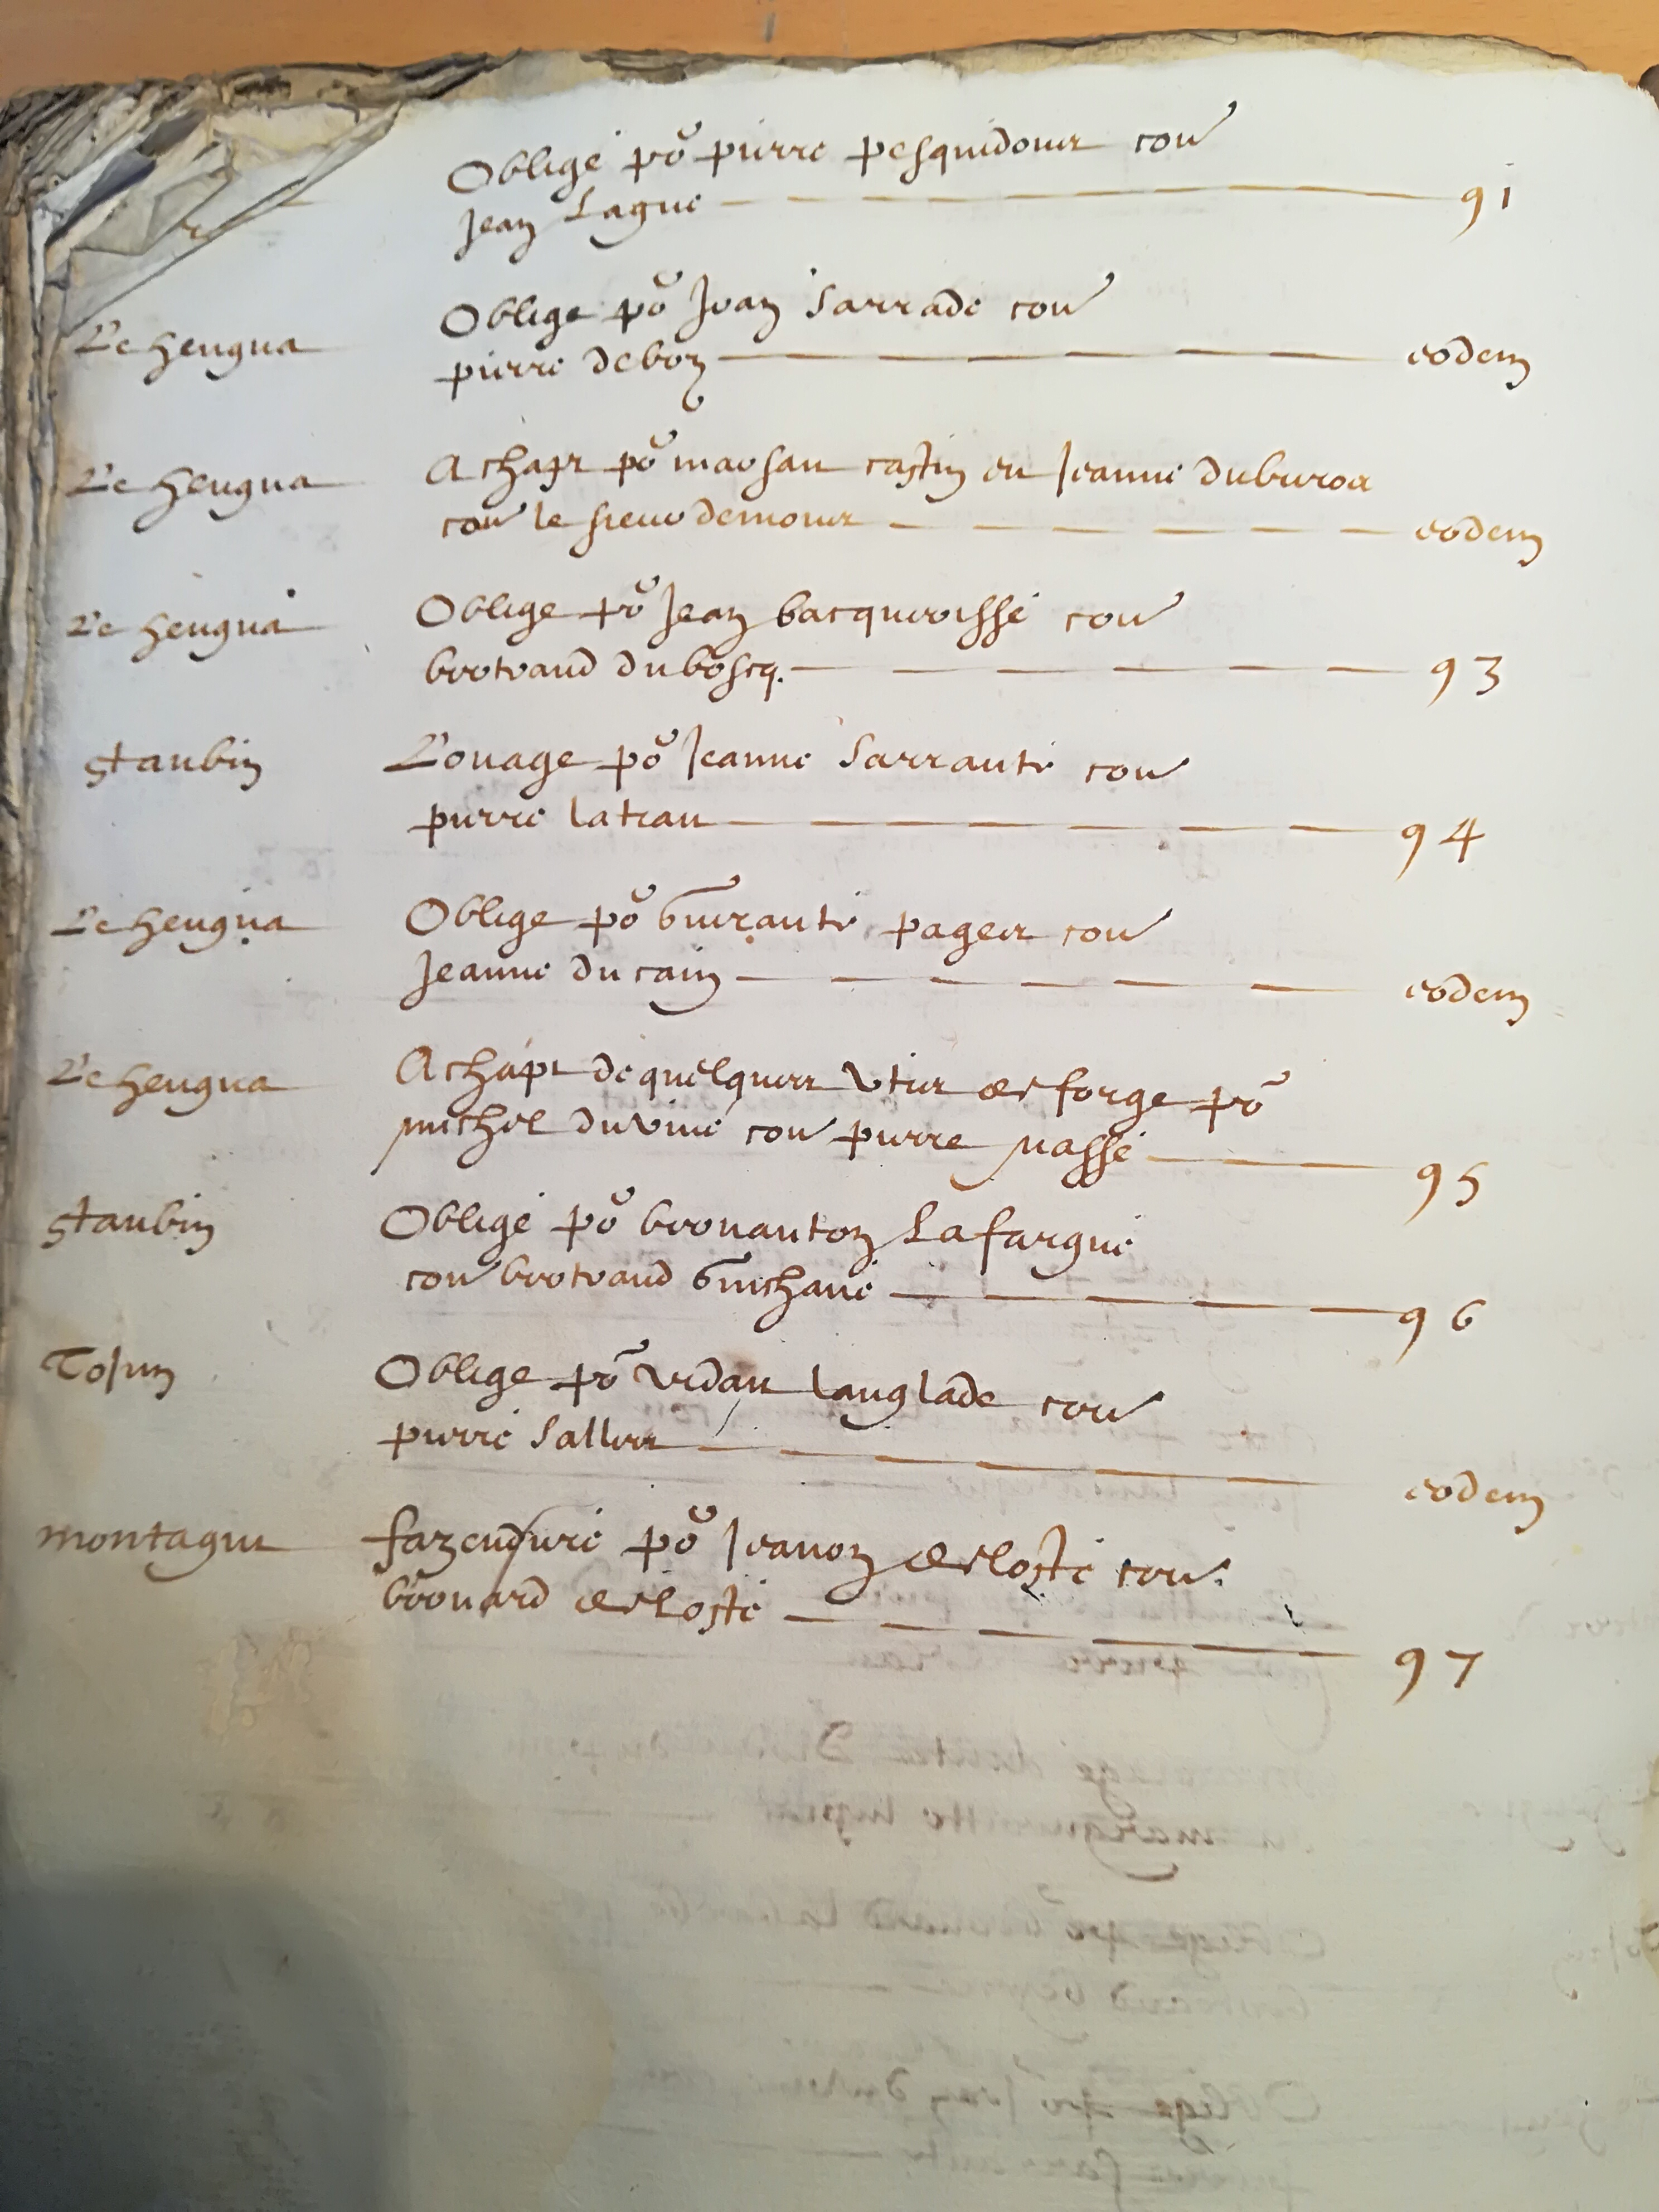 Oblige po pierre pesquidoux con
Jean Lague 91
Le hengua Oblige po Jean Sarrade con
pierre debon eodem
Le hengua Achapt po marsan castin et Jeanne duburoa
con le sieur demoux eodem
Le hengua Oblige po Jean bacquerisse con
bertrand duboscq. 93
St aubin Louage po Jeanne Sarrante con
pierre latrau 94
Le hengua Oblige po Guirante pages con
Jeanne ducain eodem
Le hengua Achapt de quelques utis de forge po
michel duvine con pierre nasse 95
St aubin Oblige po bernanton Lafargue
con bertrand Guichane 96
Tosun Oblige po vidau langlade con
pierre Salles eodem
montagut fazendure po Jeanon de Loste con
bernard de Loste 97